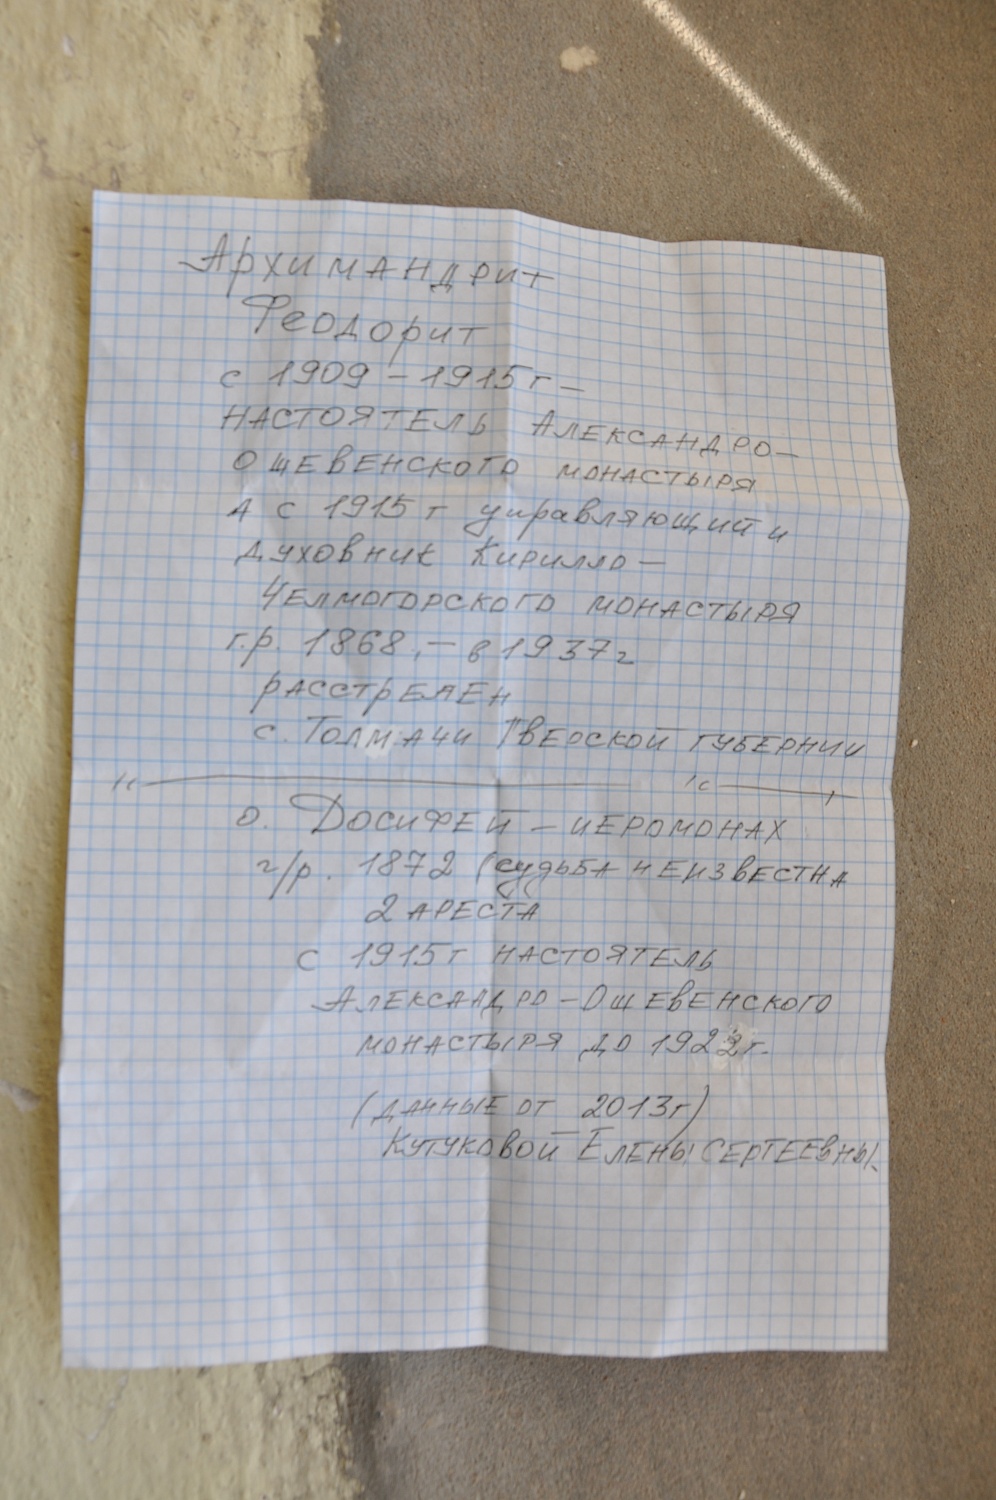 Архимандрит
Феодорит
с 1909 – 1915 г –
настоятель Александро–
Ошевенского монастыря
А с 1915 г управляющий и
духовник Кирилло –
Челмогорского монастыря
г.р. 1868, – в 1937 г
расстрелен
с. Толмачи Тверской губернии
о. Досифей – иеромонах
г/р. 1872 (судьба неизвестна
2 ареста
с 1915 г настоятель
Александро – Ошевенского
монастыря до г.
(данные от 2013 г)
Кутуковой Елены Сергеевны.